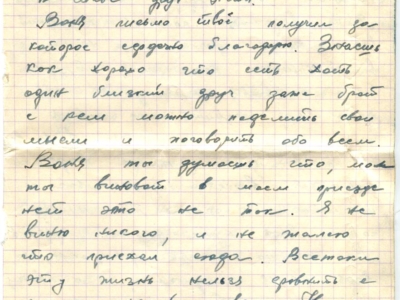 Ваня письмо твоё получил за
которое сердечно благодарю. Знаешь
как хорошо что есть хоть
один близкий друг даже брат
с кем можно поделить свои
мысли и поговорить обо всем.
Ваня ты думаешь что, мол
ты виноват в моем приезде
нет это не так. Я не
виню никого, и не жалею
что приехал сюда. Всетаки
эту жизнь нельзя сровнить с